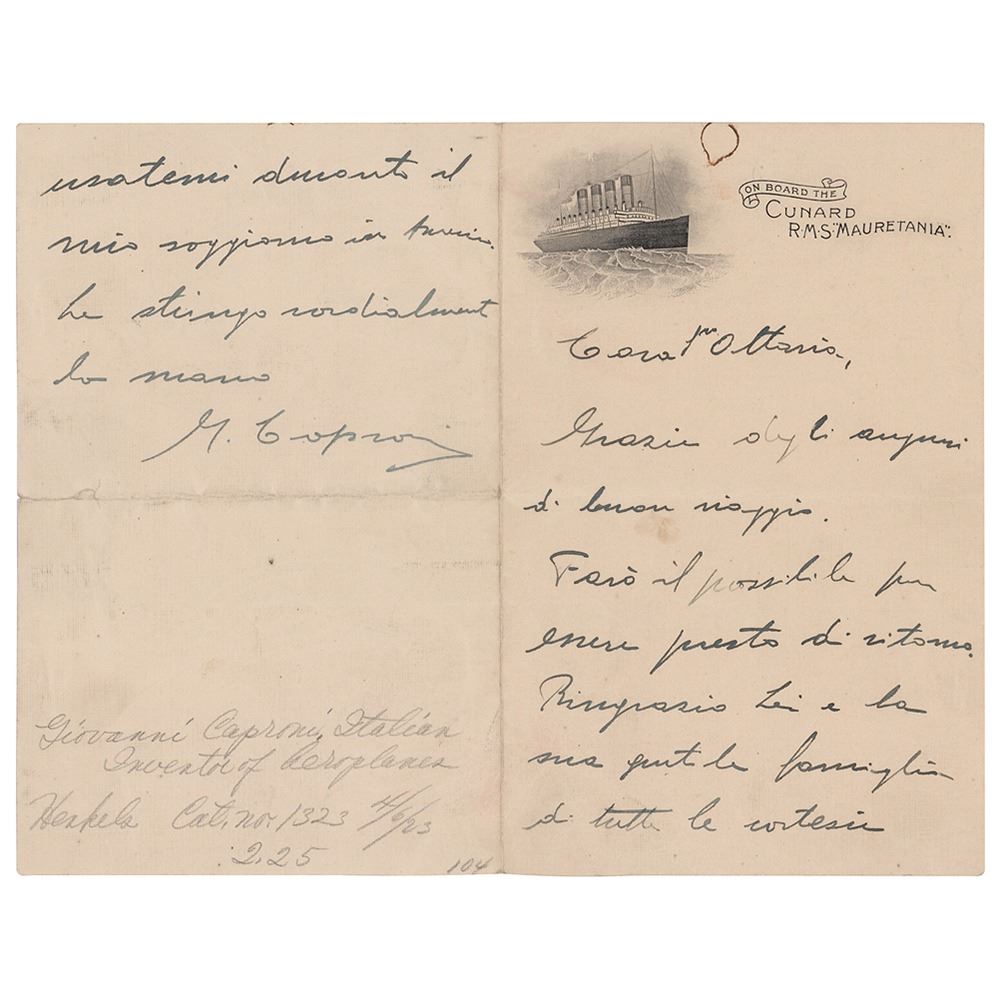 ON BOARD THE
CUNARD
R.M.S. "MAURETANIA".
Ottavia,
Grazie degli auguri
di buon viaggio.
Farò il possibile per
essere presto di ritorno.
Ringrazio Lei e la
sua gentile famiglia
di tutte le cortesie
usatemi durante il
mio soggiorno in
Le stringo cordialment
la mano
G. Caproni
Giovanni Caproni, Italian
Inventor of Aeroplanes
Henkels Cat. no. 1323 4/6/23
2.25
104